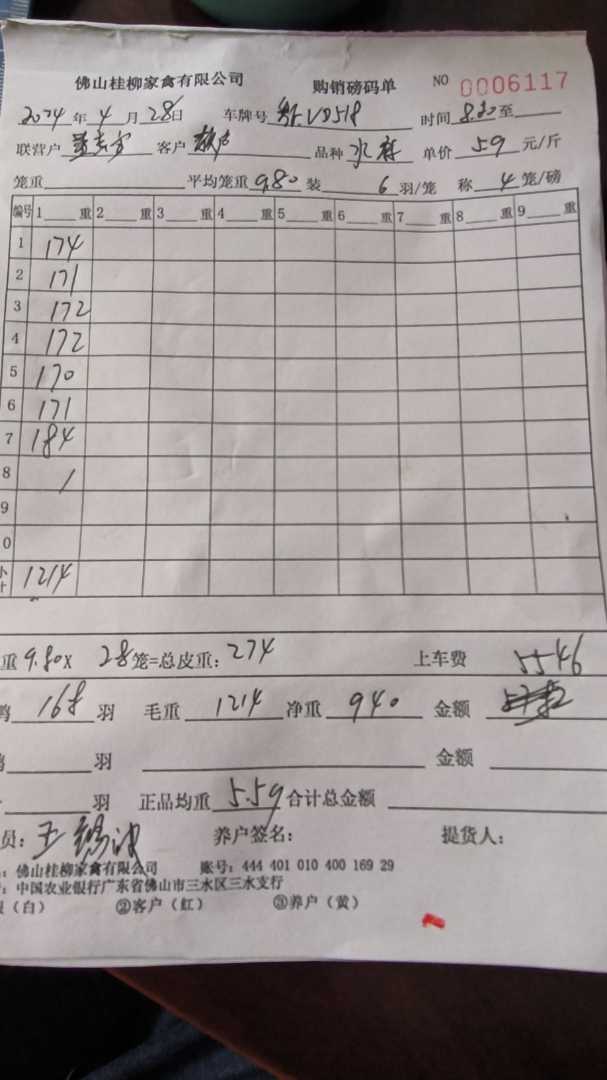 佛山桂柳家禽有限公司 购销磅码单 NO 0006117
2024年 4月 28日 车牌号 V0518 时间 8.30至
联营户 客户 品种 水鸭 单价 5.9 元/斤
笼重 平均笼重 9.80 装 6 羽/笼 称 4 笼/磅
编号 1 重 2 重 3 重 4 重 5 重 6 重 7 重 8 重 9 重
1 174
2 171
3 172
4 172
5 170
6 171
7 184
8 /
9
0
1214
重 9.80 X 28 笼=总皮重: 274 上车费
5546
鸭 168 羽 毛重 1214 净重 940 金额
羽 金额
羽 正品均重 5.59 合计总金额
员: 王 养户签名: 提货人:
: 佛山桂柳家禽有限公司 账号: 444 401 010 400 169 29
: 中国农业银行广东省佛山市三水区三水支行
(白) ②客户(红) ③养户(黄)